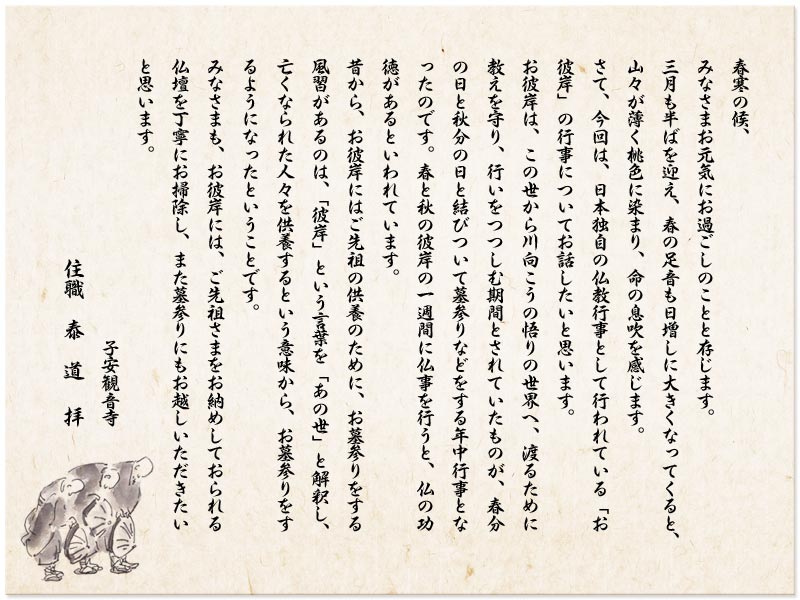 春寒の候、
みなさまお元気にお過ごしのことと存じます。
三月も半ばを迎え、春の足音も日増しに大きくなってくると、
山々が薄く桃色に染まり、命の息吹を感じます。
さて、今回は、日本独自の仏教行事として行われている「お
彼岸」の行事についてお話したいと思います。
お彼岸は、この世から川向こうの悟りの世界へ、渡るために
教えを守り、行いをつつしむ期間とされていたものが、春分
の日と秋分の日と結びついて墓参りなどをする年中行事とな
ったのです。春と秋の彼岸の一週間に仏事を行うと、仏の功
徳があるといわれています。
昔から、お彼岸にはご先祖の供養のために、お墓参りをする
風習があるのは、「彼岸」という言葉を「あの世」と解釈し、
亡くなられた人々を供養するという意味から、お墓参りをす
るようになったということです。
みなさまも、お彼岸には、ご先祖さまをお納めしておられる
仏壇を丁寧にお掃除し、また墓参りにもお越しいただきたい
と思います。
子安観音寺
住職 泰道 拝